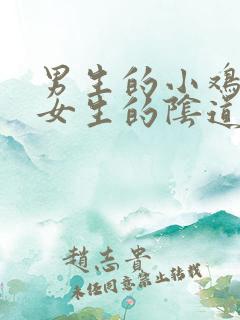 男生的小鸡
女生的陰道
趙志貴
未经同意禁止转载